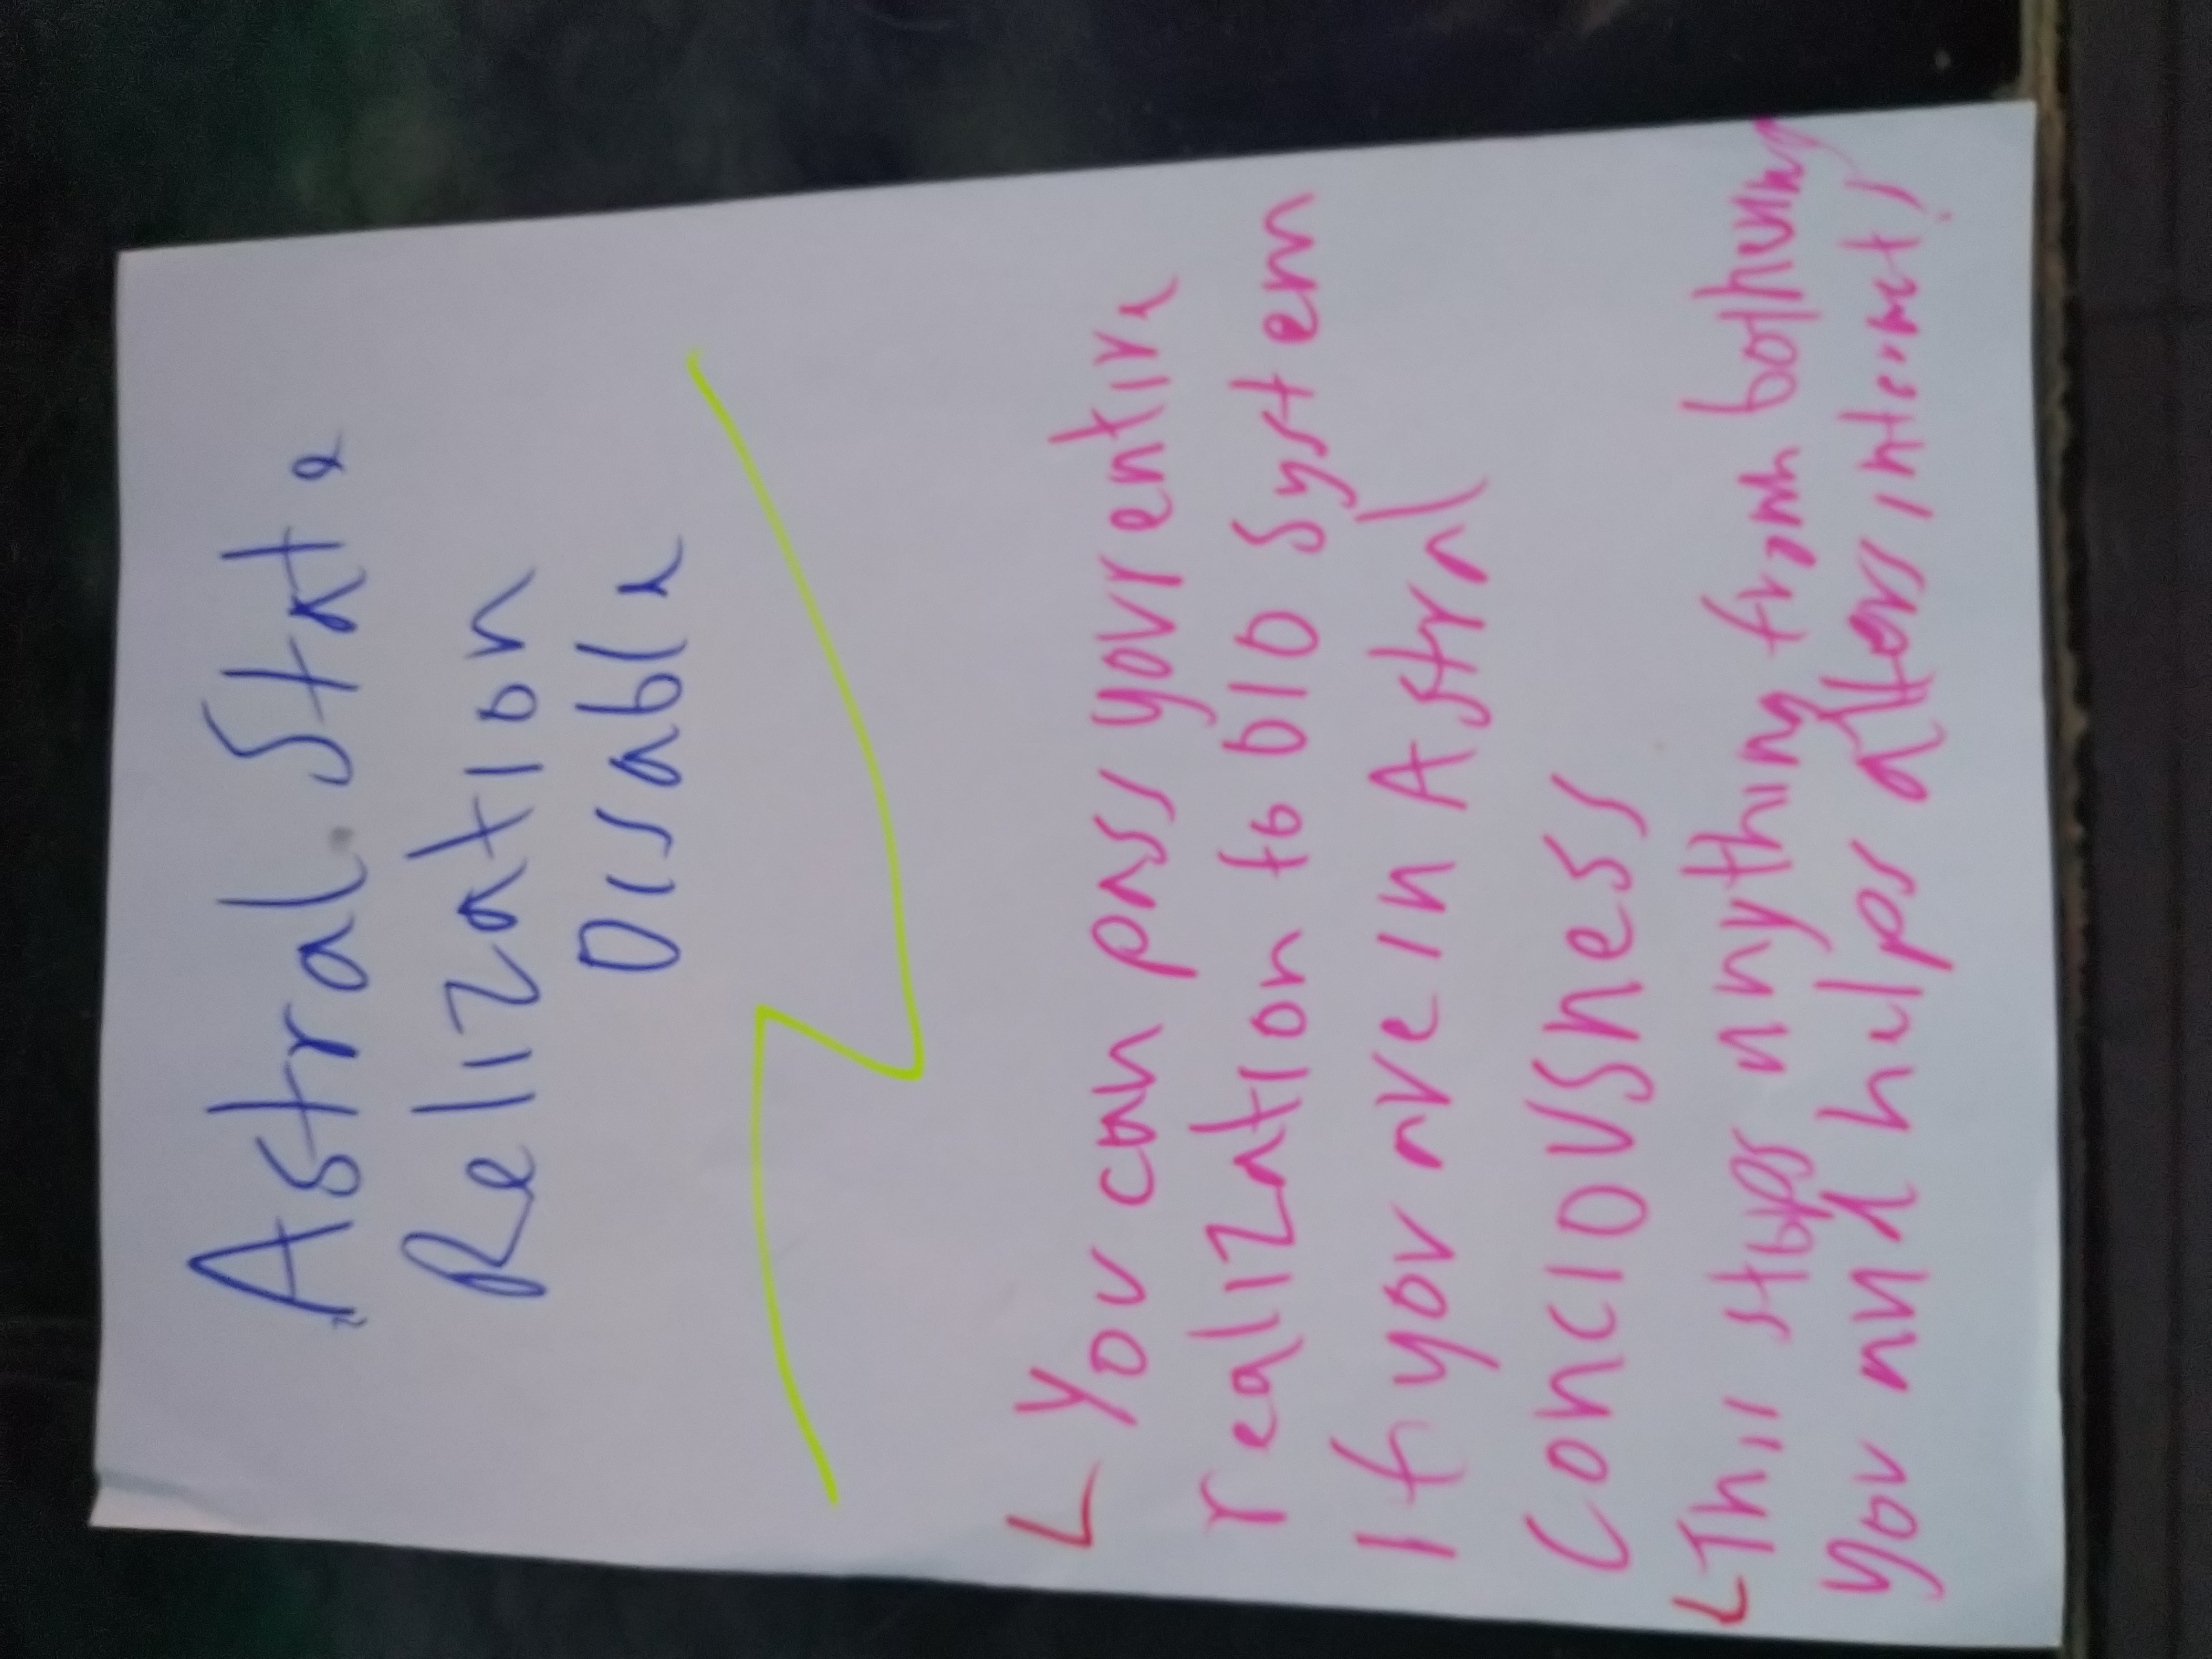 Astral State
Relization
Disable
You can pass your entire
realization to bio system
if you are in Astral
conciousness
This stops anything from bothering
you and helps after